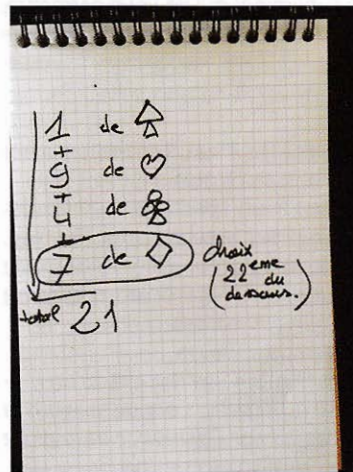 1 de ♤
+
9 de ♡
+
4 de ♧
+
7 de ◇
choix
(22eme
du
dessous.)
total 21